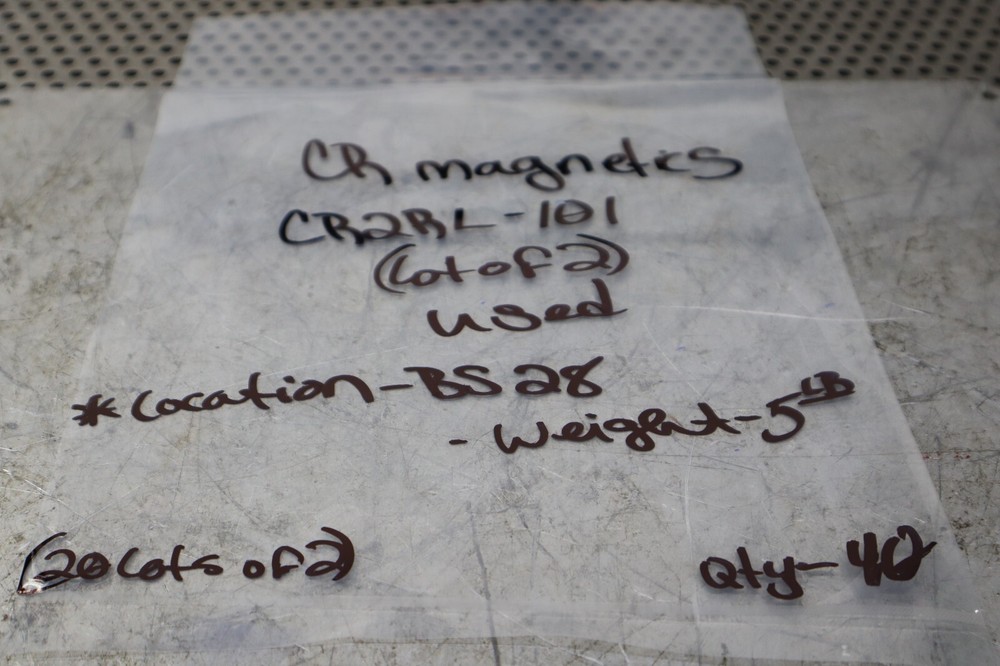 CR magnetics
CR2RL-101
(Lot of 2)
used
*Location-BS28
- Weight-5LB
(20 Lots of 2)
Qty-40